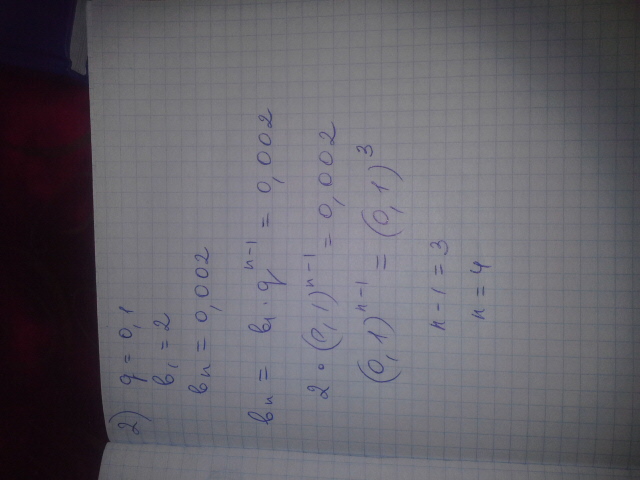 2) q = 0,1
b₁ = 2
bₙ = 0,002
bₙ = b₁ · qⁿ⁻¹ = 0,002
2 · (0,1)ⁿ⁻¹ = 0,002
(0,1)ⁿ⁻¹ = (0,1)³
n - 1 = 3
n = 4